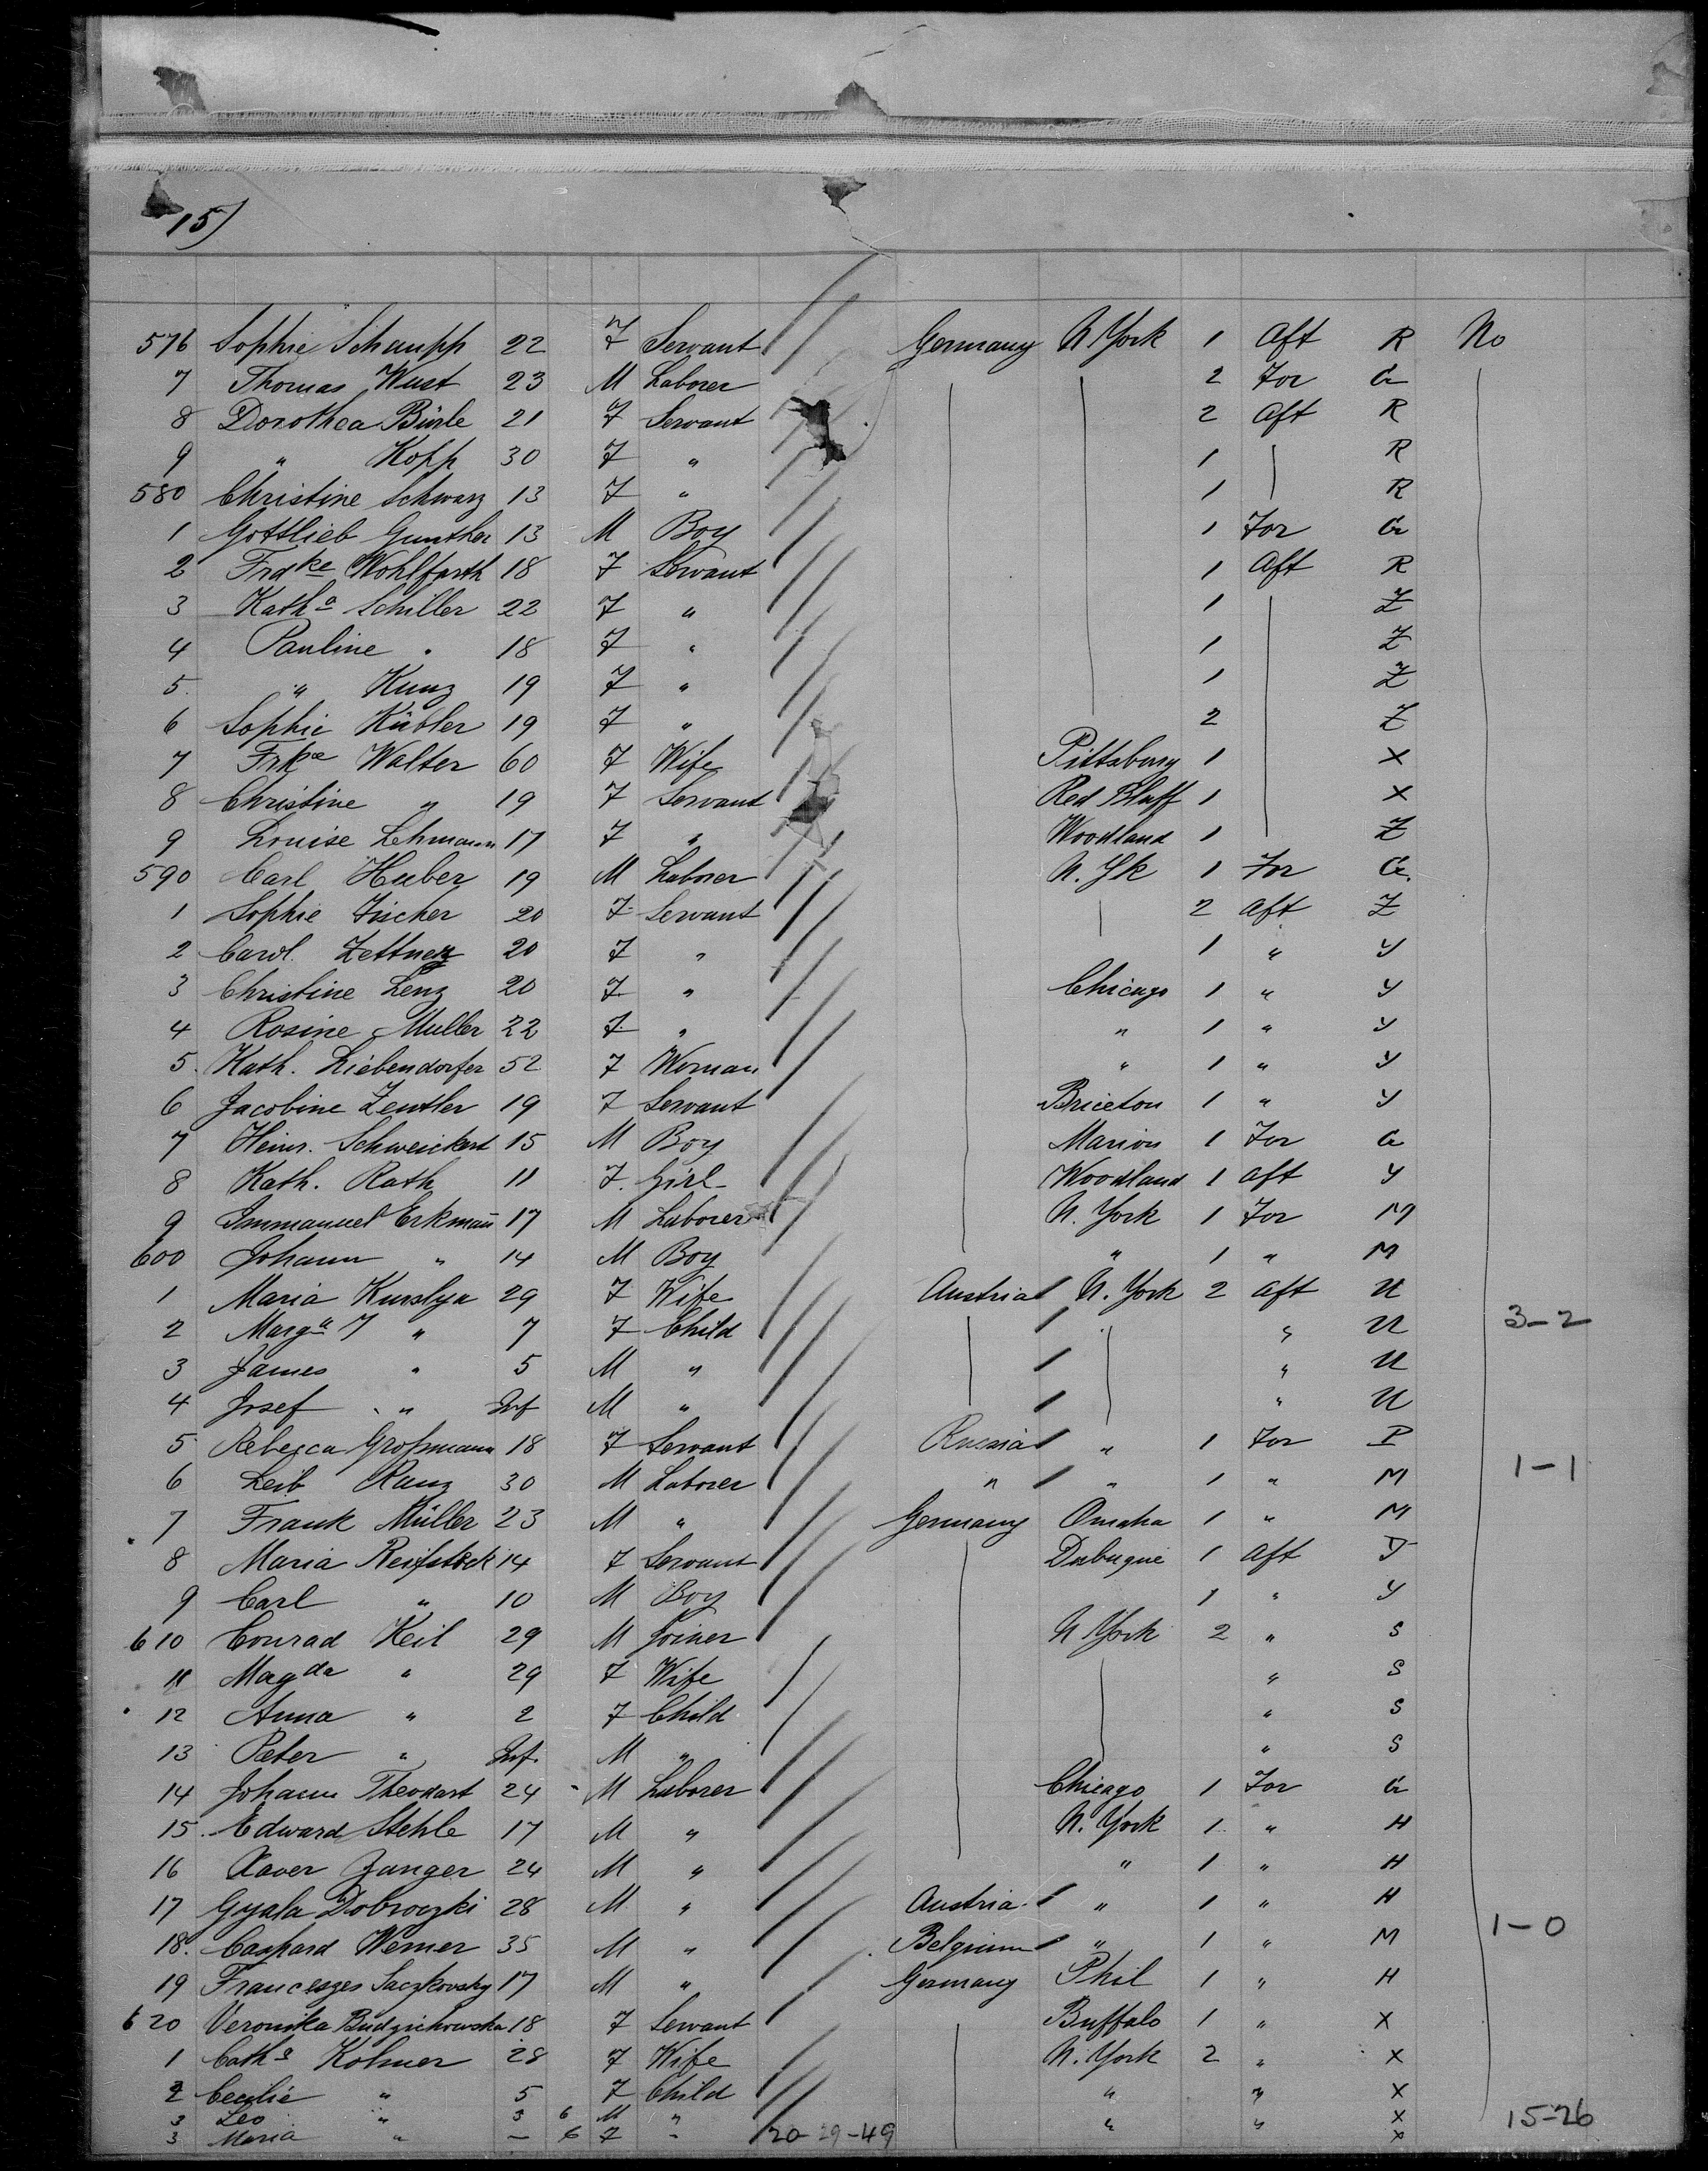 15)
576 Sophie Schaupp 22 F Servant Germany N York 1 Aft R No
7 Thomas Wust 23 M Laborer 2 For G
8 Dorothea Bürle 21 F Servant 2 Aft R
9 " Kopp 30 F " 1 R
580 Christine Schwarz 13 F " 1 R
1 Gottlieb Gunther 13 M Boy 1 For G
2 Frdke Wohlfarth 18 F Servant 1 Aft R
3 Katha Schiller 22 F " 1 Z
4 Pauline " 18 F " 1 Z
5 " Kunz 19 F " 1 Z
6 Sophie Kübler 19 F " 2 Z
7 Frke Walter 60 F Wife Pittsburg 1 X
8 Christine " 19 F Servant Red Bluff 1 X
9 Louise Lehmann 17 F " Woodland 1 Z
590 Carl Huber 19 M Laborer N. Yk 1 For G.
1 Sophie Fischer 20 F Servant 2 Aft Z
2 Carol. Zettner 20 F " 1 " Y
3 Christine Lenz 20 F " Chicago 1 " Y
4 Rosine Muller 22 F " " 1 " Y
5. Kath. Liebendorfer 52 F Woman " 1 " Y
6 Jacobine Zentler 19 F Servant Briceton 1 " Y
7 Heinr. Schweickert 15 M Boy Marion 1 For G
8 Kath. Rath 11 F. Girl Woodland 1 Aft Y
9 Immanuel Erkmañ 17 M Laborer N. York 1 For M
600 Johann " 14 M Boy " 1 " M
1 Maria Kuraslya 29 F Wife Austria N. York 2 Aft U
2 Marga " 7 F Child " U 3-2
3 James " 5 M " " U
4 Josef " Inf M " " U
5 Rebecca Großmann 18 F Servant Russia " 1 For P
6 Leib Ranz 30 M Laborer " " 1 " M 1-1
7 Frank Müller 23 M " Germany Omaha 1 " M
8 Maria Reifstock 14 F Servant Dubuque 1 Aft
9 Carl " 10 M Boy 1 " Y
610 Conrad Keil 29 M Joiner N York 2 " S
11 Magda " 29 F Wife " S
12 Anna " 2 F Child " S
13 Peter " Inf. M " " S
14 Johann Theodart 24 M Laborer Chicago 1 For G
15. Edward Stehle 17 M " N. York 1 " H
16 Xaver Zanger 24 M " " 1 " H
17 Gyala Dobroczki 28 M " Austria " 1 " H
18. Caspard Werner 35 M " Belgium " 1 " M 1-0
19 Francesges Saczkovsky 17 M " Germany Phil 1 " H
620 Veronika Budzichowska 18 F Servant Buffalo 1 " X
1 Catha Kolmer 28 F Wife N. York 2 " X
2 Cecilie " 5 F Child " " X
3 Leo " 3 6 M " " " X 15-26
3 Maria " — 6 F " 20-29-49 X